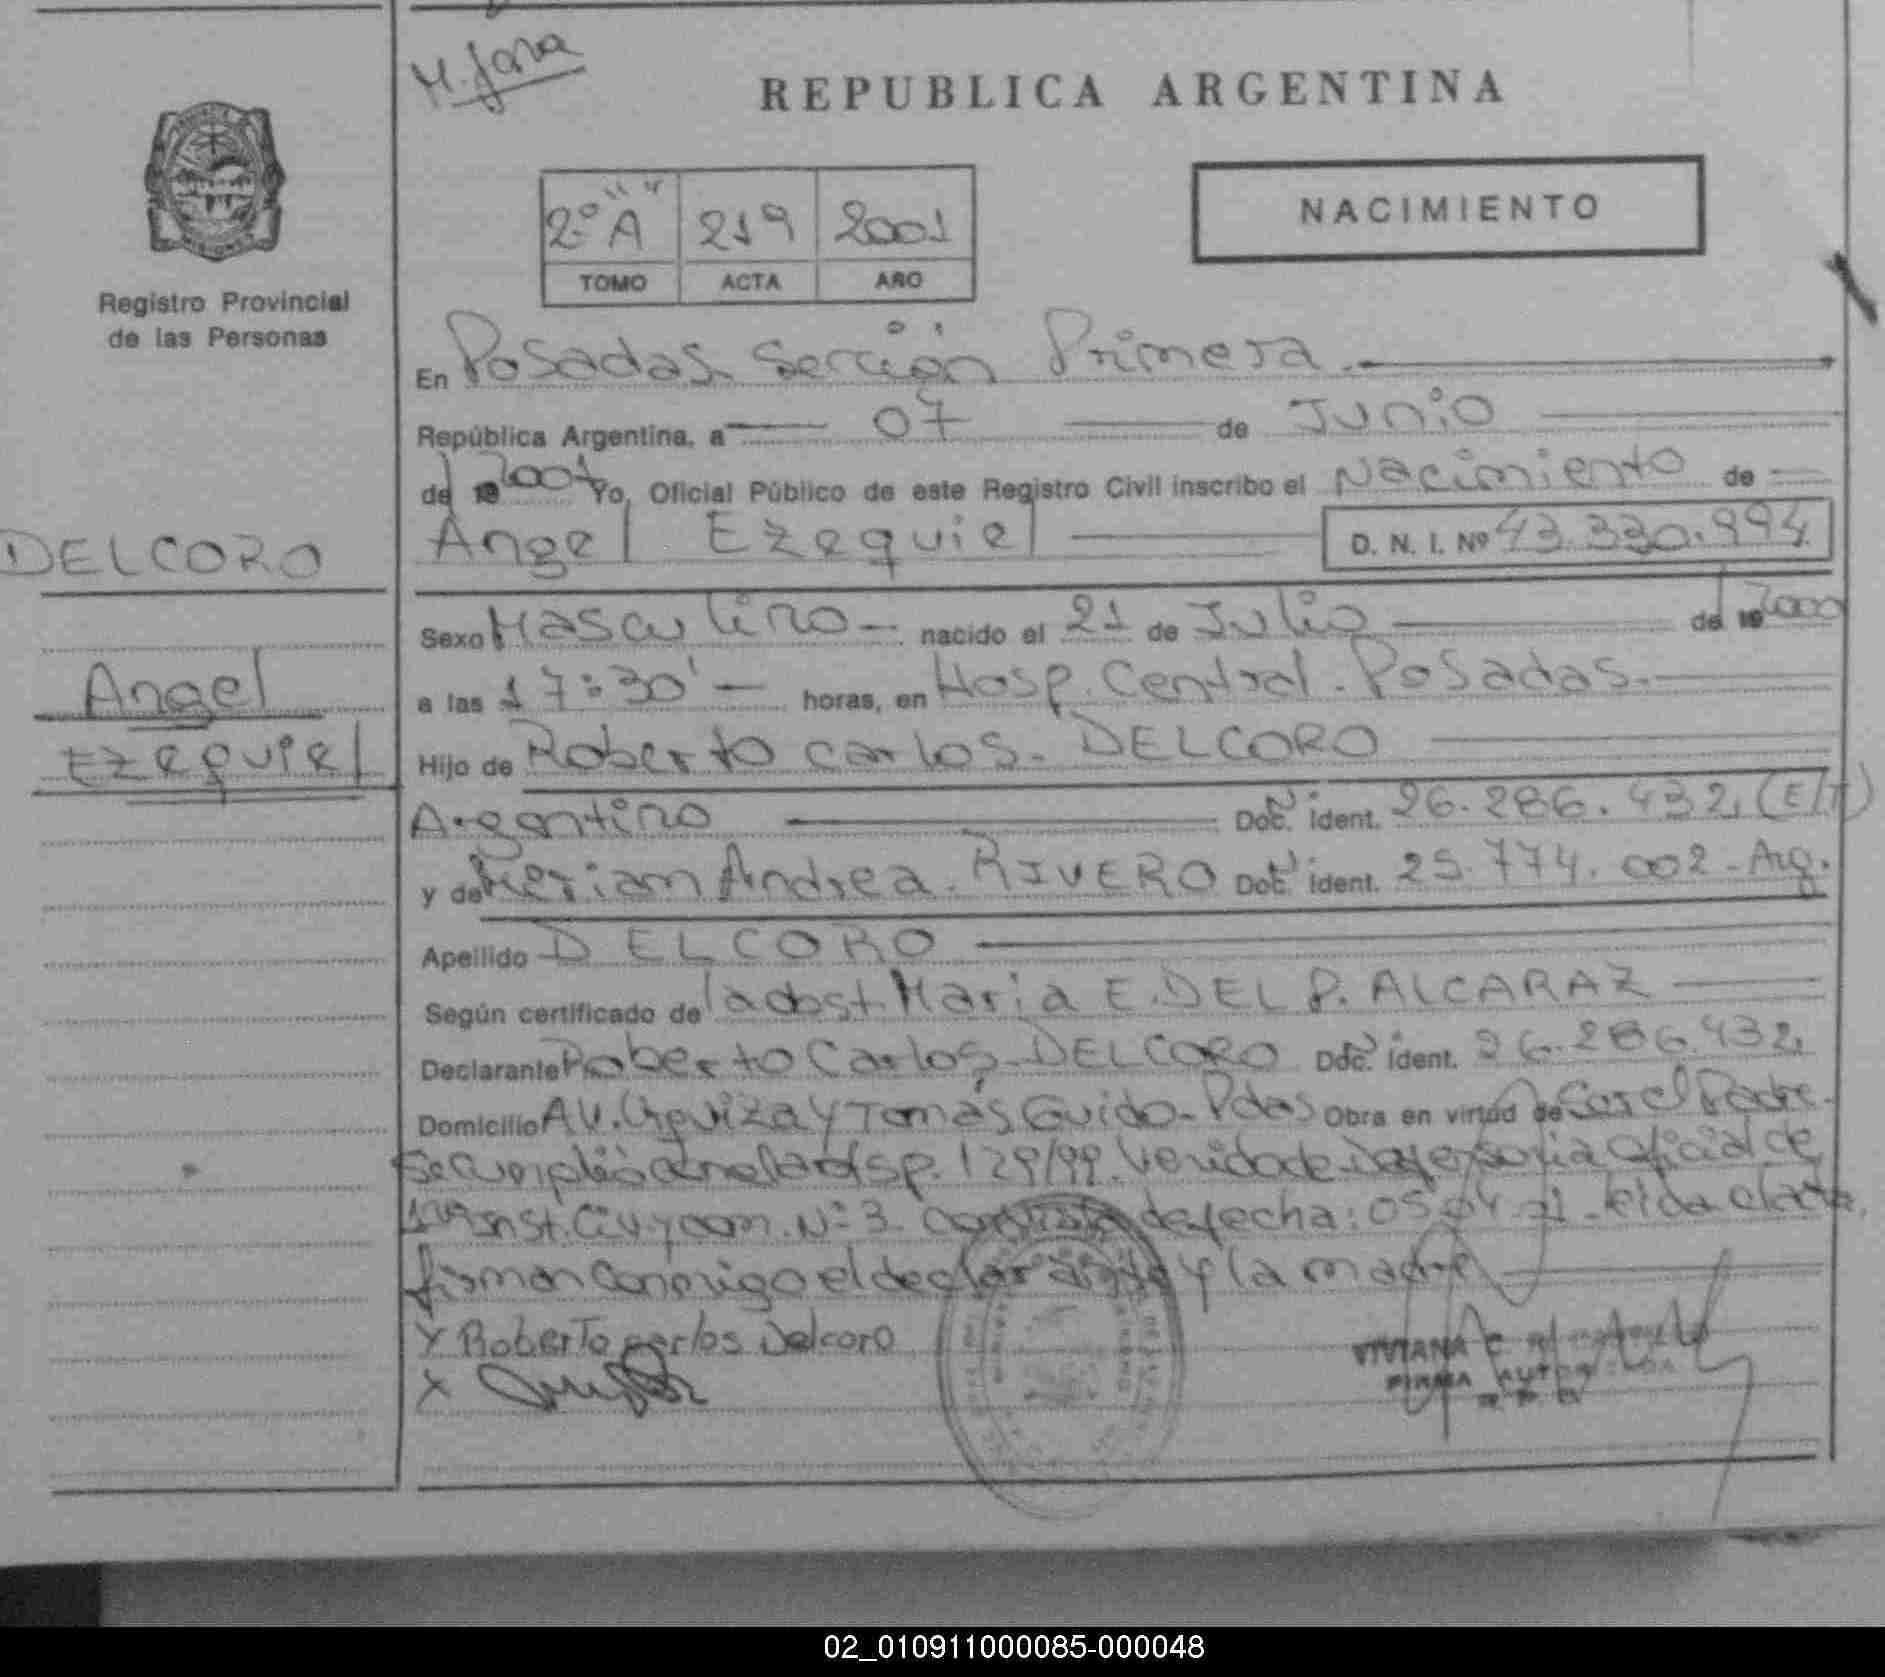 M. Jara
REPUBLICA ARGENTINA
2º "A" 219 2001
TOMO ACTA AÑO
NACIMIENTO
Registro Provincial
de las Personas
En Posadas Sección Primera
República Argentina, a 07 de Junio
de 19 2001 Yo, Oficial Público de este Registro Civil inscribo el Nacimiento de
DELCORO
Angel Ezequiel D. N. I. Nº 43.330.994
Sexo Masculino nacido el 21 de Julio de 19 2000
Angel
a las 17:30' horas, en Hosp. Central. Posadas.
Ezequiel
Hijo de Roberto Carlos. DELCORO
Argentino Doc. ident. 26.286.432, (E/T)
y de Meriam Andrea. RIVERO Doc. ident. 25.774.002 - Arg.
Apellido DELCORO
Según certificado de la obst. Maria E. DEL P. ALCARAZ
Declarante Roberto Carlos DELCORO Doc. ident. 26.286.432,
Domicilio AV. Urquiza y Tomás Guido - Pdas Obra en virtud de Ser el Padre.
Se cumplió con la disp. 129/99. Venida de Defensoria Oficial de
1ra Inst. Civ. y com. Nº 3 de fecha: 05 04 01 - leida el acta,
firman conmigo el declarante y la madre
X Roberto carlos Delcoro
X
VIVIANA C.
FIRMA AUTORIZADA
02_010911000085-000048